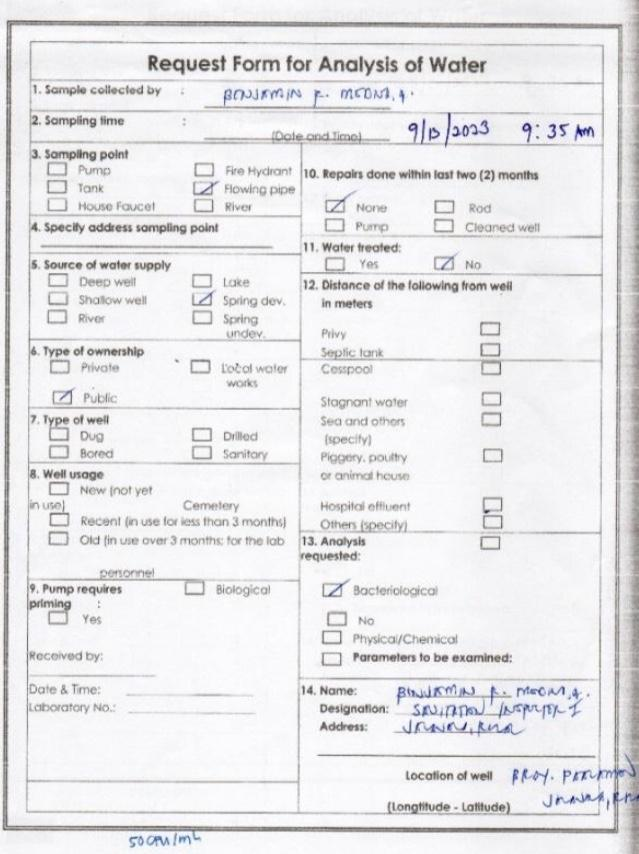 Request Form for Analysis of Water
1. Sample collected by :
2. Sampling time :
(Date and Time) 9/13/2023 9:35 AM
3. Sampling point
Pump
Fire Hydrant
Tank
Flowing pipe
House Faucet
River
4. Specify address sampling point
5. Source of water supply
Deep well
Lake
Shallow well
Spring dev.
River
Spring undev.
6. Type of ownership
Private
Local water works
Public
7. Type of well
Dug
Drilled
Bored
Sanitary
8. Well usage
New (not yet
in use) Cemetery
Recent (in use for less than 3 months)
Old (in use over 3 months; for the lab
personnel
9. Pump requires
priming :
Biological
Yes
Received by:
Date & Time:
Laboratory No.:
10. Repairs done within last two (2) months
None
Rod
Pump
Cleaned well
11. Water treated:
Yes
No
12. Distance of the following from well
in meters
Privy
Septic tank
Cesspool
Stagnant water
Sea and others
(specify)
Piggery, poultry
or animal house
Hospital effluent
Others (specify)
13. Analysis
requested:
Bacteriological
No
Physical/Chemical
Parameters to be examined:
14. Name:
Designation: SANITATION INSPECTOR I
Address:
Location of well BRGY.
(Longtitude - Latitude)
50 CFU/mL